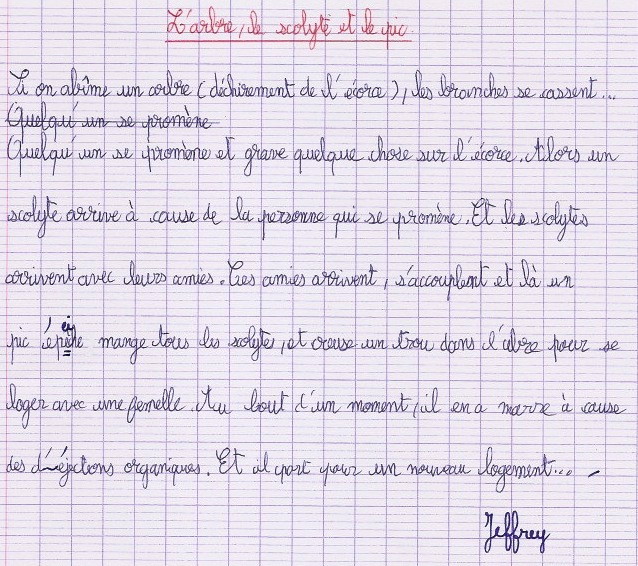 L'arbre, le scolyte et le pic.
Si on abîme un arbre (déchirement de l'écorce), les branches se cassent...
Quelqu'un se promène
Quelqu'un se promène et grave quelque chose sur l'écorce. Alors un
scolyte arrive à cause de la personne qui se promène. Et les scolytes
arrivent avec leurs amies. Ces amies arrivent, s'accouplent et là un
pic épeiche mange tous les scolytes, et creuse un trou dans l'abre pour se
loger avec une femelle. Au bout d'un moment, il en a marre à cause
des déjections organiques. Et il part pour un nouveau logement...
Jeffrey